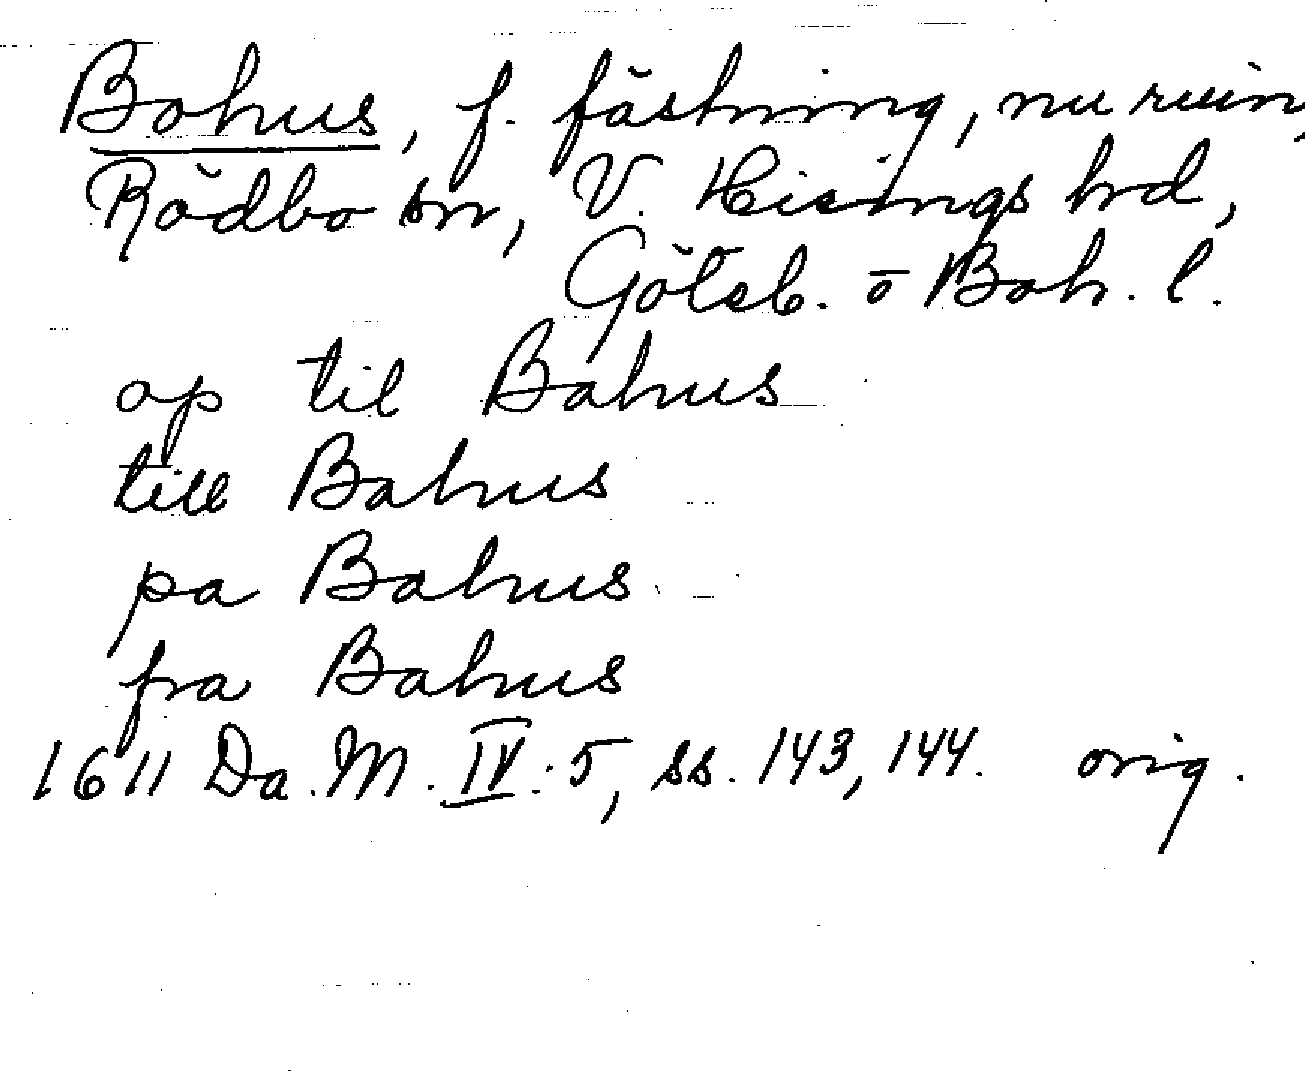 Bohus, f. fästning, nu ruin,
Rödbo sn, V. Hisings hrd,
Göteb. o Boh. l.
op til Bahus
till Bahus
pa Bahus
fra Bahus
1611 Da. M. IV. 5, ss. 143, 144. orig.